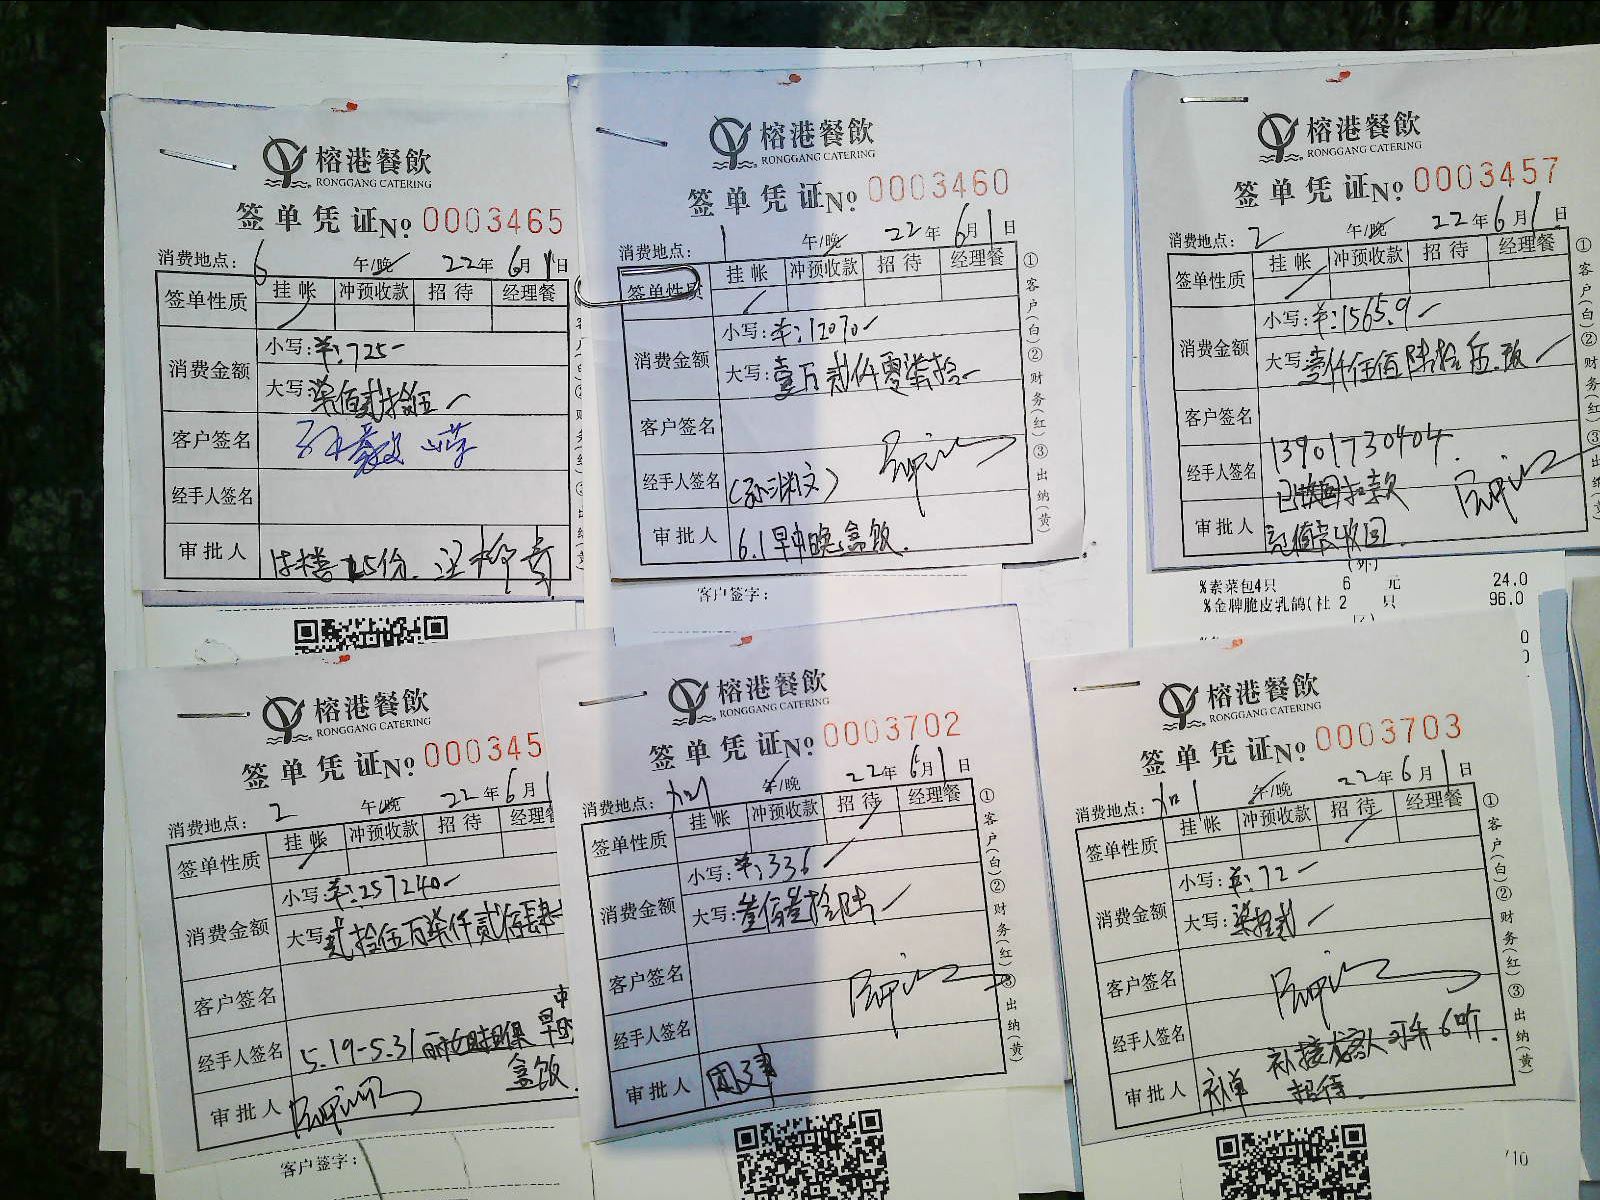 榕港餐飲
RONGGANG CATERING
签单凭证No 0003465
消费地点: 6 午/晚 22年6月1日
签单性质 挂帐 冲预收款 招待 经理餐
消费金额
小写:羊:725-
大写:柒佰贰拾伍-
客户签名
经手人签名
审批人
榕港餐飲
RONGGANG CATERING
签单凭证No 0003460
消费地点: 1 午/晚 22年6月1日
签单性质 挂帐 冲预收款 招待 经理餐
消费金额
小写:羊:12070-
大写:壹万贰仟零柒拾-
客户签名
经手人签名
审批人 6.1早中晚盒饭.
①客户(白)②财务(红)③出纳(黄)
客户签字:
榕港餐飲
RONGGANG CATERING
签单凭证No 0003457
消费地点: 2 午/晚 22年6月1日
签单性质 挂帐 冲预收款 招待 经理餐
消费金额
小写:羊:1565.9-
大写:壹仟伍佰陆拾伍.玖
客户签名
13901730404.
经手人签名 扣款
审批人 收回.
①客户(白)②财务(红)③出纳(黄)
%素菜包4只 6 元 24.0
%金牌脆皮乳鸽(社 2 只 96.0
榕港餐飲
RONGGANG CATERING
签单凭证No 000345
消费地点: 2 午/晚 22年6月1
签单性质 挂帐 冲预收款 招待 经理餐
消费金额
小写:羊:257240-
大写:贰拾伍万柒仟贰佰肆拾
客户签名
经手人签名 5.19-5.31 早中晚
盒饭.
审批人
客户签字:
榕港餐飲
RONGGANG CATERING
签单凭证No 0003702
消费地点: 午/晚 22年6月1日
签单性质 挂帐 冲预收款 招待 经理餐
消费金额
小写:羊:336
大写:叁佰叁拾陆
客户签名
经手人签名
审批人
①客户(白)②财务(红)③出纳(黄)
榕港餐飲
RONGGANG CATERING
签单凭证No 0003703
消费地点: 午/晚 22年6月1日
签单性质 挂帐 冲预收款 招待 经理餐
消费金额
小写:羊:72-
大写:柒拾贰
客户签名
经手人签名 可乐6听.
审批人 补单 招待.
①客户(白)②财务(红)③出纳(黄)
/10